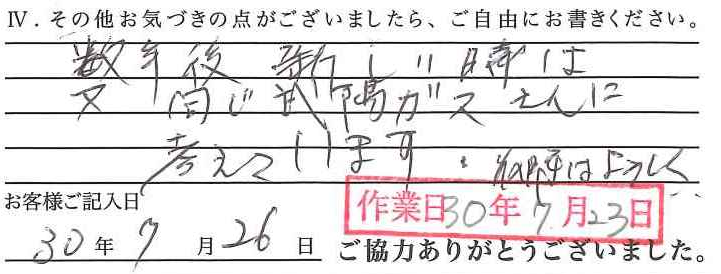 Ⅳ．その他お気づきの点がございましたら、ご自由にお書きください。
数年後 新しい時は
又 同じ 武陽ガスさんに
考えています．其時はよろしく
お客様ご記入日
作業日30年7月23日
30年7月26日 ご協力ありがとうございました。